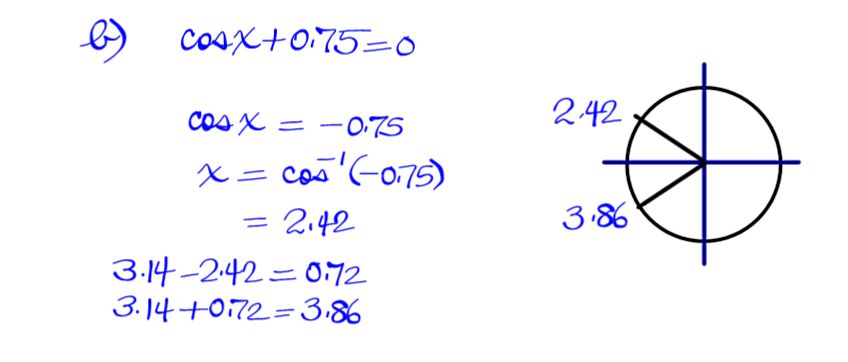 b) cosx+0.75=0
cosx = -0.75
x = cos⁻¹(-0.75)
= 2.42
3.14-2.42=0.72
3.14+0.72=3.86
2.42
3.86